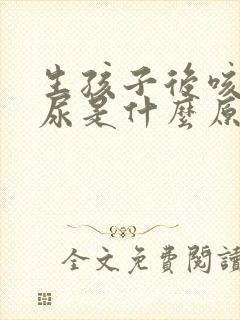 生孩子後咳
尿是什麼原
全文免費閱讀